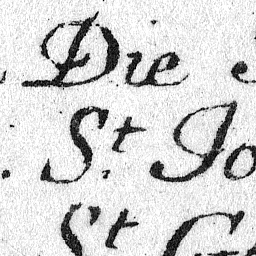 Die
St. Jo
St G